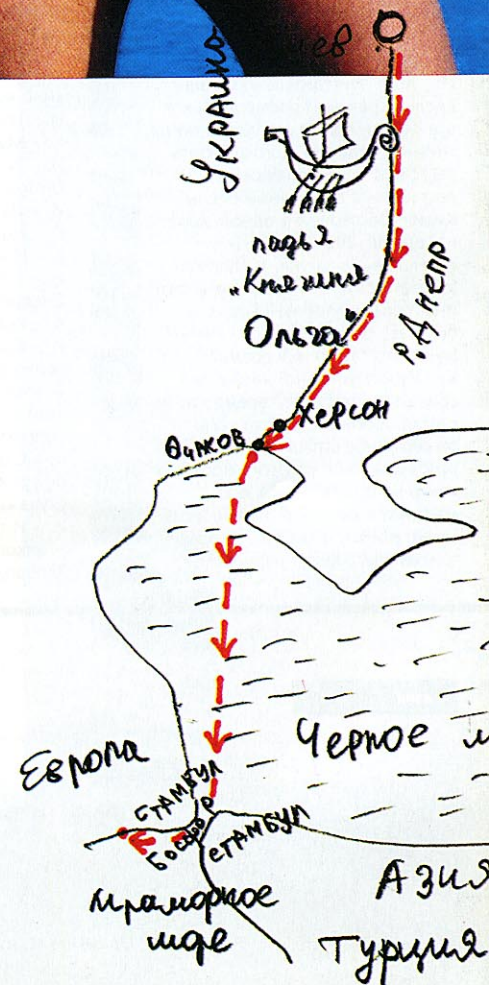 Украина
ладья
„Княгиня
Ольга"
р. Днепр
Херсон
Очаков
Черное
Европа
СТАМБУЛ
Босфор
СТАМБУЛ
Мраморное
море
АЗИЯ
Турция